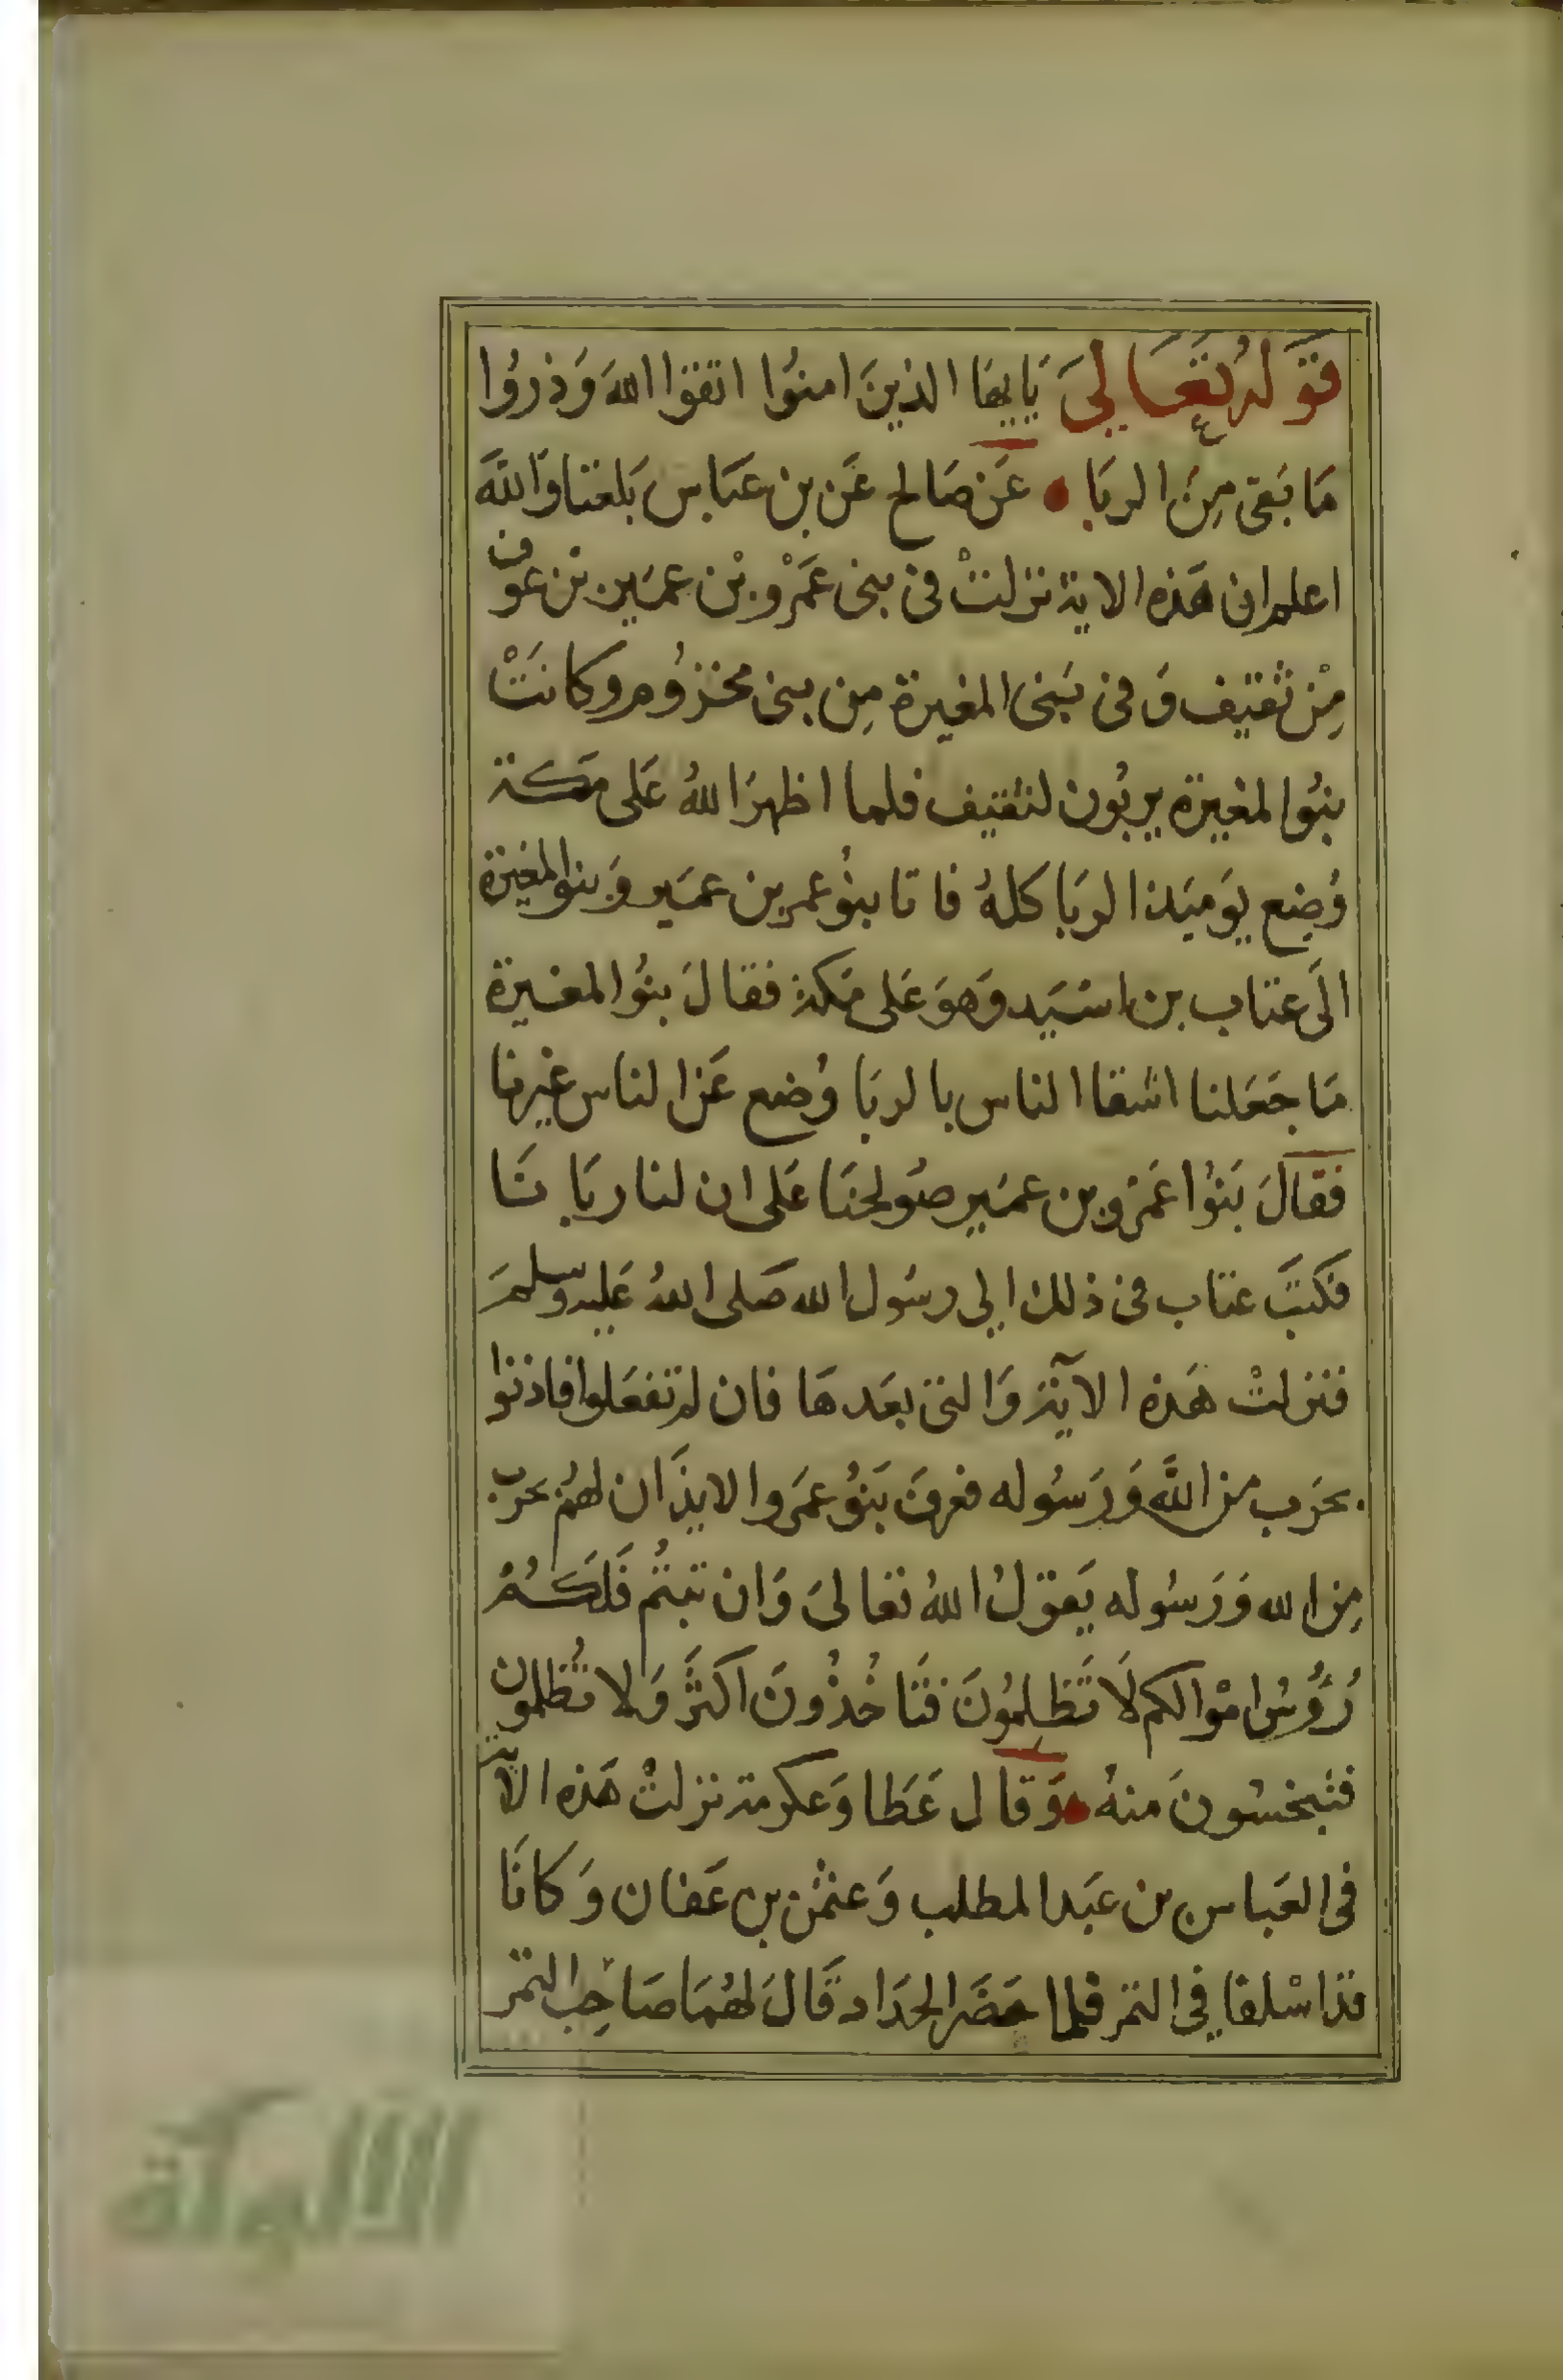 قَوله تعَالىَ يَايهَا الذينَ امنوُا اتقوا اللهَ وَذروُا
مَا بَقى مِنَ الربَا عَن صَالح عَن بن عَبَاس بَلغنا وَاللهَ
اعلم ان هَذه الاية نزلتْ فى بنى عَمْرو بْن عميَر بْن عوف
مِنْ ثقيف وَفى بَنى المغيرة مِن بنى مخزوُم وكانَتْ
بنوُا المغيرة يربوُن لثقيف فلما اظهرَ اللهُ عَلى مَكة
وُضِع يَوميَذ الربَا كلهُ فاتا بنوُ عمر بن عميَر وَبنوا المغيرة
الَى عتاب بن اسَيَد وَهوَ عَلى مَكة فقالَ بنوُا المغيرة
مَا جَعَلنا اشقا الناس بالربَا وُضع عَن الناس غيرنا
فقالَ بَنوُا عَمَرو بن عميَر صُولحنَا عَلى ان لنا ربَا نَا
فكتبَ عتاب فى ذلك الي رسُول الله صَلى اللهُ عَليه وسلمَ
فنزلتْ هَذه الآية وَالتى بعَدهَا فان لم تفعَلوا فاذنوا
بحرَب من اللَّه وَرَسُوله فعرفَ بَنوُ عمَروا لايذَان لهُم بحرَب
مِن الله وَرَسُوله يَقولُ اللهُ تعالىَ وَان تبتُم فَلَكُمُ
رُؤُسُ امْوالكم لَا تَظلِمُونَ فتَاخُذُونَ اكثَر وَلا تُظلمون
فتبخسُونَ منهُ وَقال عَطا وَعكرمة نزلتْ هَذه الاية
فى العَباس بن عبَد المطلب وَعثمْن بن عَفان وَكانَا
قد اسْلفا فِى التمر فلما حَضَر الجدَاد قَالَ لهُمَا صَاحِب التمر
الالوكة